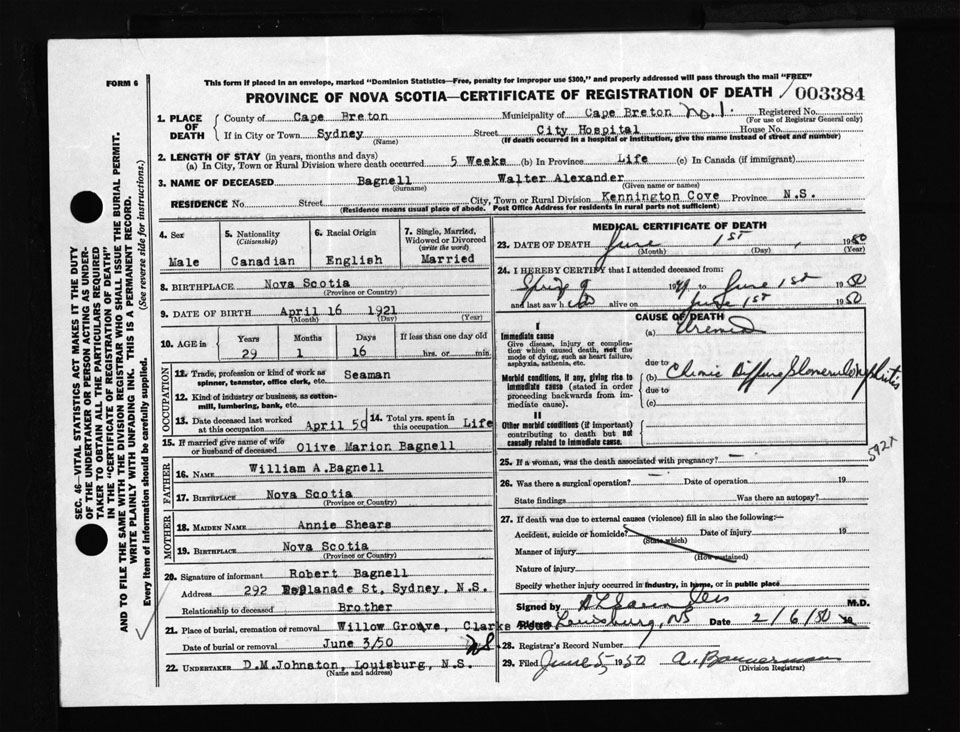 FORM 6
This form if placed in an envelope, marked "Dominion Statistics—Free, penalty for improper use $300," and properly addressed will pass through the mail "FREE"
PROVINCE OF NOVA SCOTIA—CERTIFICATE OF REGISTRATION OF DEATH
003384
SEC. 46—VITAL STATISTICS ACT MAKES IT THE DUTY
OF THE UNDERTAKER OR PERSON ACTING AS UNDER-
TAKER TO OBTAIN ALL THE PARTICULARS REQUIRED
IN THE "CERTIFICATE OF REGISTRATION OF DEATH"
AND TO FILE THE SAME WITH THE DIVISION REGISTRAR WHO SHALL ISSUE THE BURIAL PERMIT.
WRITE PLAINLY WITH UNFADING INK. THIS IS A PERMANENT RECORD.
Every item of information should be carefully supplied. (See reverse side for instructions.)
1. PLACE OF DEATH
County of Cape Breton Municipality of Cape Breton No. 1. Registered No.
(For use of Registrar General only)
If in City or Town Sydney Street City Hospital House No.
(Name) (If death occurred in a hospital or institution, give the name instead of street and number)
2. LENGTH OF STAY (in years, months and days)
(a) In City, Town or Rural Division where death occurred 5 Weeks (b) In Province Life (c) In Canada (if immigrant)
3. NAME OF DECEASED Bagnell Walter Alexander
(Surname) (Given name or names)
RESIDENCE No. Street City, Town or Rural Division Kennington Cove Province N.S.
(Residence means usual place of abode. Post Office Address for residents in rural parts not sufficient)
4. Sex
Male
5. Nationality
(Citizenship)
Canadian
6. Racial Origin
English
7. Single, Married,
Widowed or Divorced
(write the word)
Married
8. BIRTHPLACE Nova Scotia
(Province or Country)
9. DATE OF BIRTH April 16 1921
(Month) (Day) (Year)
10. AGE in Years Months Days If less than one day old
29 1 16 hrs. or min.
OCCUPATION
12. Trade, profession or kind of work as Seaman
spinner, teamster, office clerk, etc.
12. Kind of industry or business, as cotton-
mill, lumbering, bank, etc.
13. Date deceased last worked
at this occupation April 50
14. Total yrs. spent in
this occupation Life
15. If married give name of wife
or husband of deceased Olive Marion Bagnell
FATHER
16. NAME William A.Bagnell
17. BIRTHPLACE Nova Scotia
(Province or Country)
MOTHER
18. MAIDEN NAME Annie Shears
19. BIRTHPLACE Nova Scotia
(Province or Country)
20. Signature of informant Robert Bagnell
Address 292 Esplanade St, Sydney, N.S.
Relationship to deceased Brother
21. Place of burial, cremation or removal Willow Grove, Clarks Road
Date of burial or removal June 3/50 NS
22. UNDERTAKER D.M.Johnston, Louisburg, N.S.
(Name and address)
MEDICAL CERTIFICATE OF DEATH
23. DATE OF DEATH June 1st 1950
(Month) (Day) (Year)
24. I HEREBY CERTIFY that I attended deceased from:
Spring of 19 to June 1st 1950
and last saw h alive on June 1st 1950
CAUSE OF DEATH
I
Immediate cause
Give disease, injury or complica-
tion which caused death, not the
mode of dying, such as heart failure,
asphyxia, asthenia, etc.
(a) Uremia
due to
Morbid conditions, if any, giving rise to
immediate cause (stated in order
proceeding backwards from im-
mediate cause).
(b) Chronic Diffuse Glomerulonephritis
due to
(c)
II
Other morbid conditions (if important)
contributing to death but not
causally related to immediate cause.
592X
25. If a woman, was the death associated with pregnancy? —
26. Was there a surgical operation? — Date of operation 19
State findings Was there an autopsy?
27. If death was due to external causes (violence) fill in also the following:—
Accident, suicide or homicide? Date of injury 19
(State which)
Manner of injury
(How sustained)
Nature of injury
Specify whether injury occurred in industry, in home, or in public place
Signed by M.D.
Louisburg, NS Date 2/6/50 19
28. Registrar's Record Number
29. Filed June 5 1950 A. Bannerman
(Division Registrar)